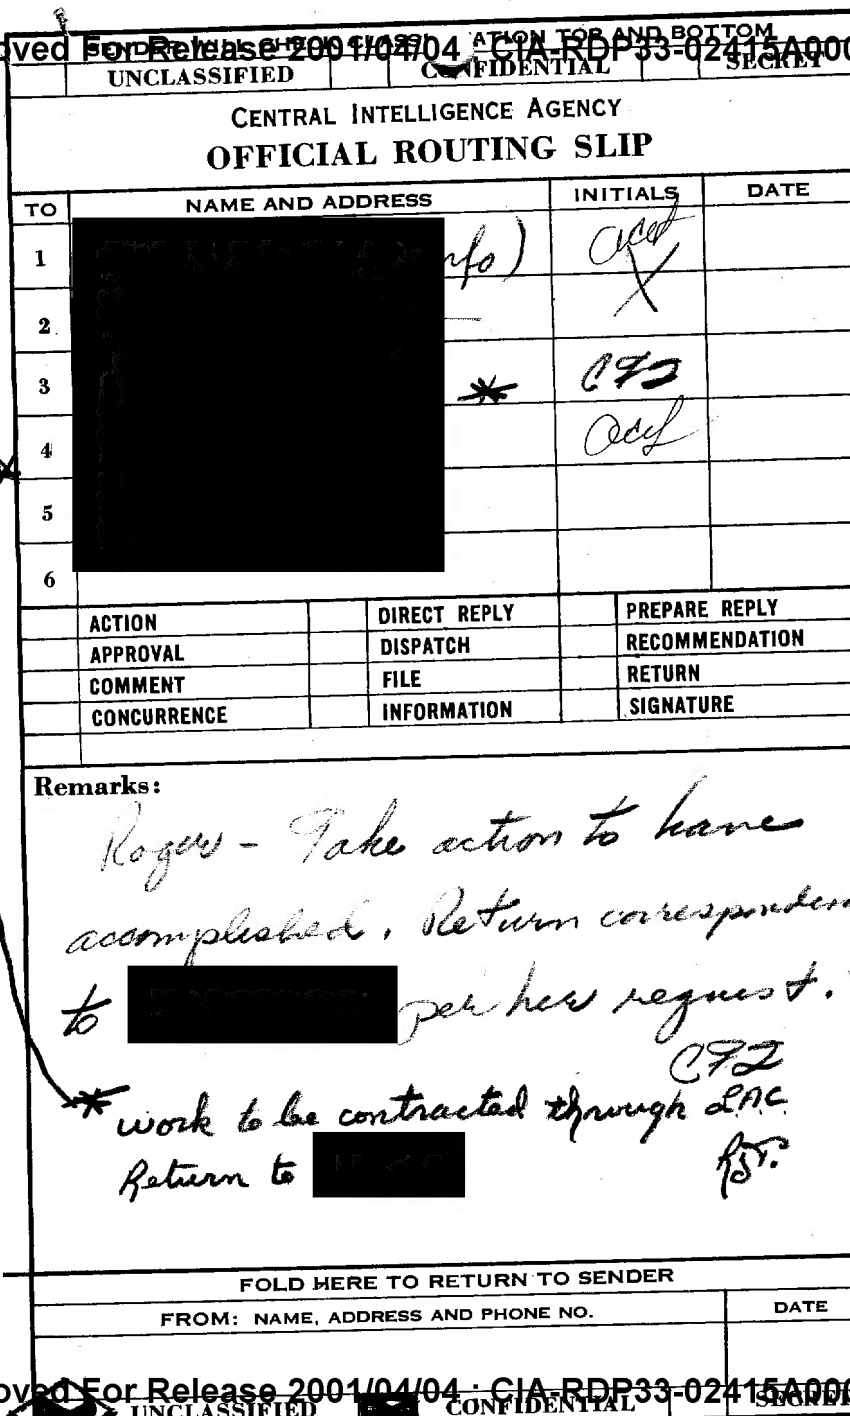 oved For Release 2001/04/04 : CIA-RDP33-02415A000
SENDER WILL CHECK CLASSIFICATION TOP AND BOTTOM
UNCLASSIFIED CONFIDENTIAL SECRET
CENTRAL INTELLIGENCE AGENCY
OFFICIAL ROUTING SLIP
TO NAME AND ADDRESS INITIALS DATE
1 nfo)
2
3 * CFJ
4
5
6
ACTION DIRECT REPLY PREPARE REPLY
APPROVAL DISPATCH RECOMMENDATION
COMMENT FILE RETURN
CONCURRENCE INFORMATION SIGNATURE
Remarks:
Rogers - Take action to have
accomplished. Return corresponden
to per her request.
* work to be contracted through LAC
Return to
FOLD HERE TO RETURN TO SENDER
FROM: NAME, ADDRESS AND PHONE NO. DATE
oved For Release 2001/04/04 : CIA-RDP33-02415A000
UNCLASSIFIED CONFIDENTIAL SECRET